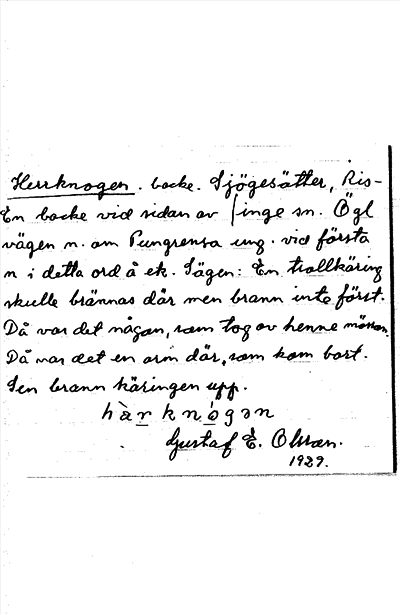 Herrknogen. backe. Sjögesätter, Ris-
En backe vid sidan av [inge sn. Ögl
vägen n. om Pungrensa ung. vid första
n i detta ord å ek. Sägen: En trollkäring
skulle brännas där men brann inte först.
Då var det någon, som tog av henne mössan.
Då var det en orm där, som kom bort.
Sen brann käringen upp.
hàrknógən
Gustaf E. Olsson.
1929.